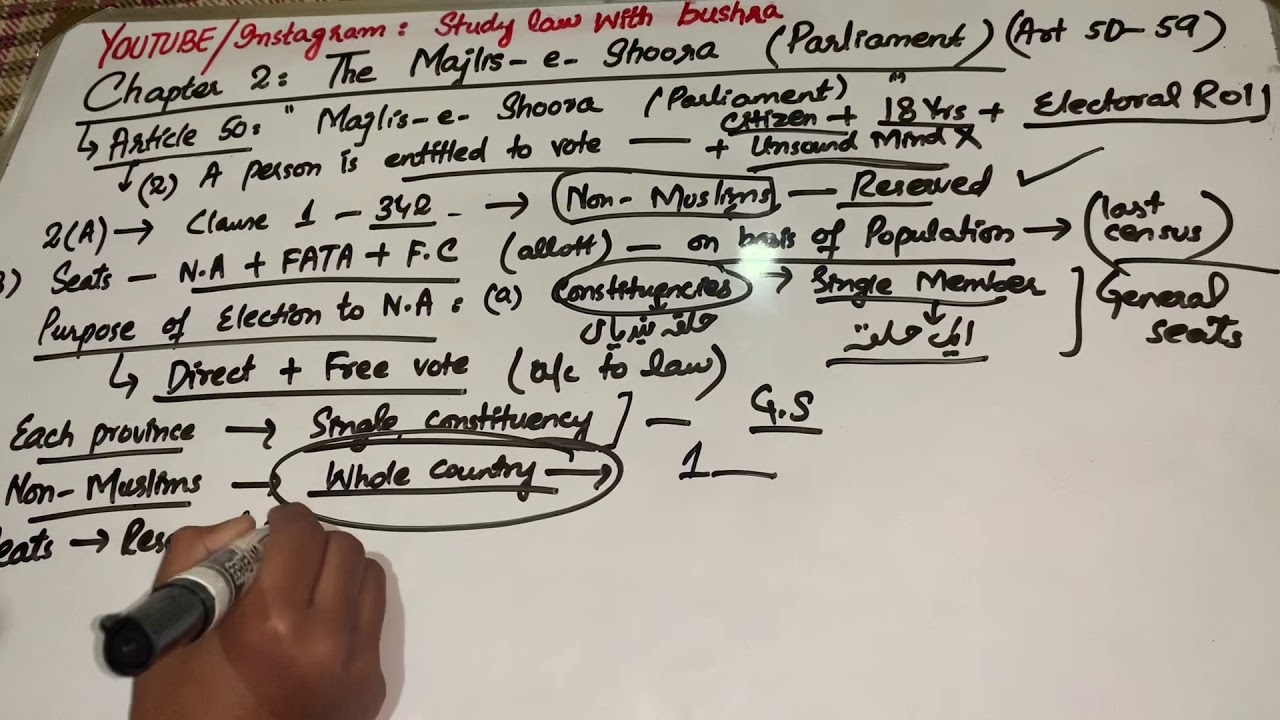 YOUTUBE/Instagram: Study law with bushra
Chapter 2: The Majlis-e-Shoora (Parliament) (Art 50-59)
↳ Article 50: " Majlis-e-Shoora (Parliament) "
↓ (2) A person is entitled to vote — citizen + 18 Yrs + Electoral Roll + Unsound Mind X
2(A) → Clause 1 - 342 - → Non-Muslims — Reserved ✓
3) Seats - N.A + FATA + F.C (allott) - on basis of Population → (last census)
Purpose of Election to N.A: (a) Constituencies → Single Member ] General seats
حلقہ بندیاں ایک حلقہ
↳ Direct + Free vote (a/c to law)
Each province → Single constituency ] — G.S
Non-Muslims → Whole country → 1 —
eats → Res